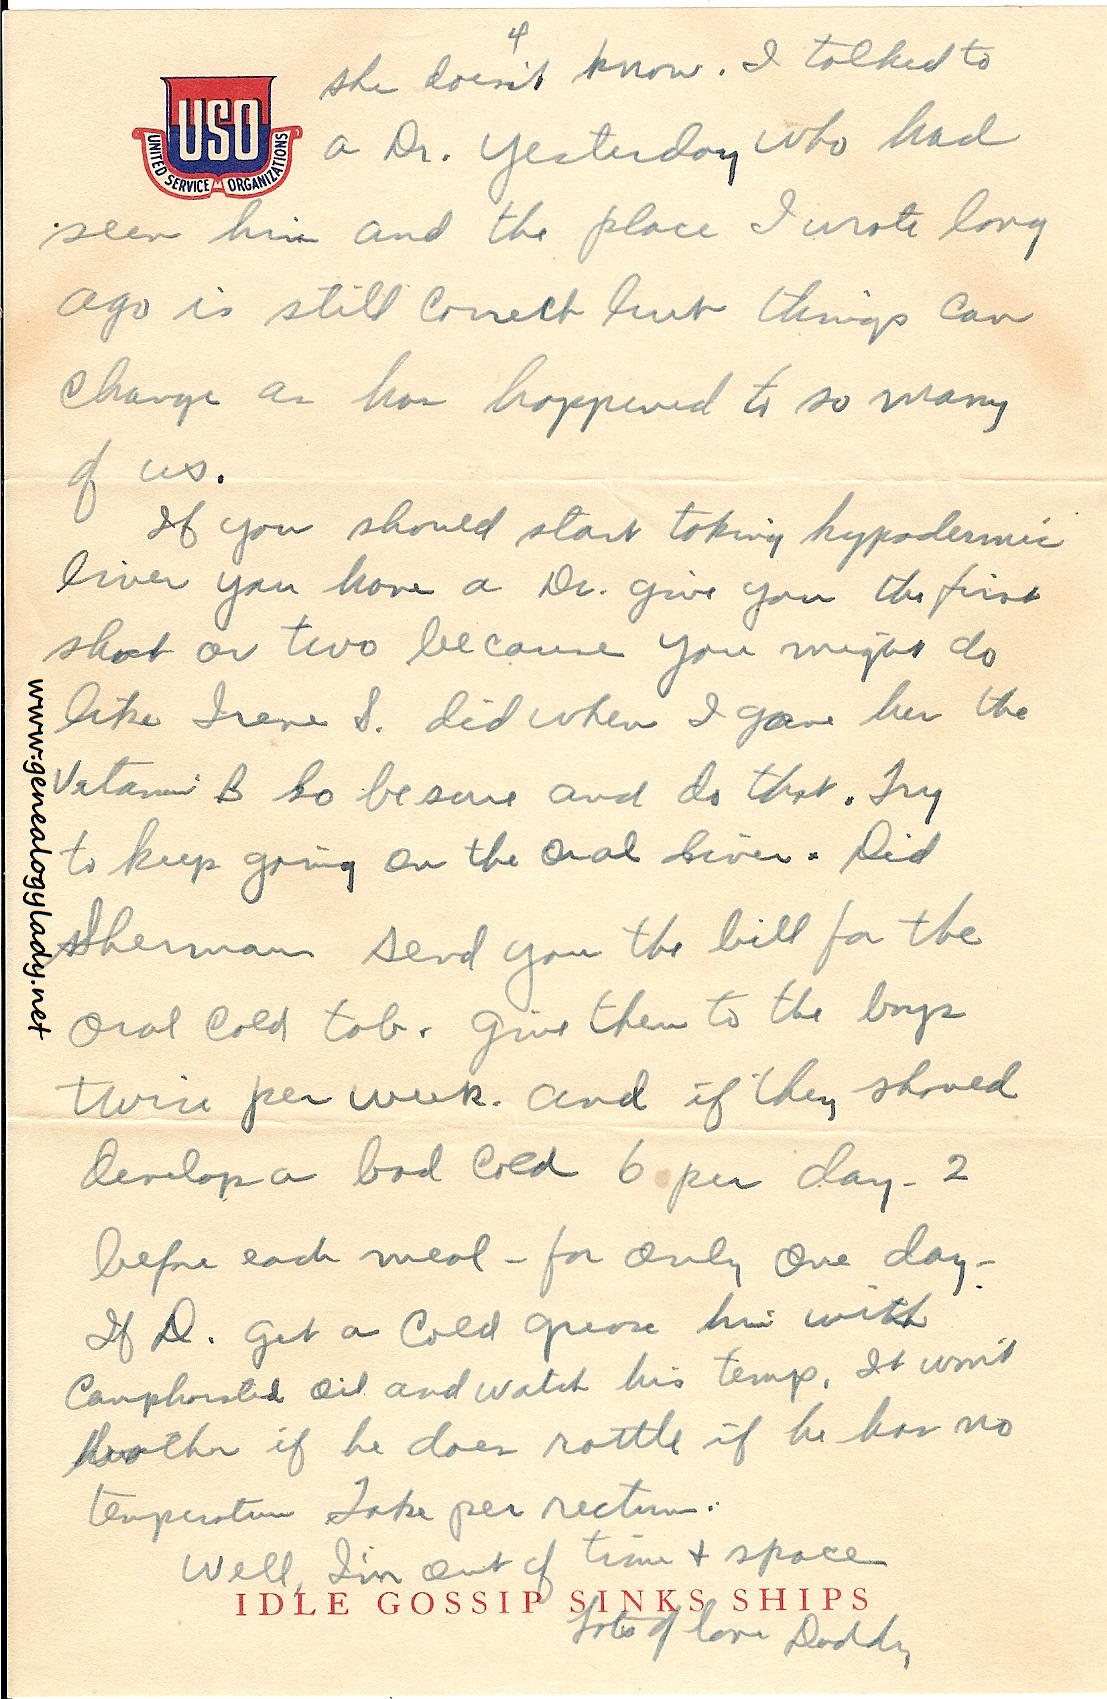 4
she doesn't know. I talked to
USO
UNITED SERVICE ORGANIZATIONS
a Dr. yesterday who had
seen him and the place I wrote long
ago is still correct but things can
change as has happened to so many
of us.
If you should start taking hypodermic
liver you have a Dr. give you the first
shot or two because you might do
like Irene S. did when I gave her the
Vitamin B so be sure and do that. Try
to keep going on the oral liver. Did
Sherman send you the bill for the
oral cold tab. Give them to the boys
twice per week. and if they should
develop a bad cold 6 per day - 2
before each meal - for only one day -
If D. get a cold grease him with
Camphorated oil and watch his temp. It won't
bother if he does rattle if he has no
temperature Take per rectum.
Well, I'm out of time + space
IDLE GOSSIP SINKS SHIPS
Lots of love Daddy
www.genealogylady.net